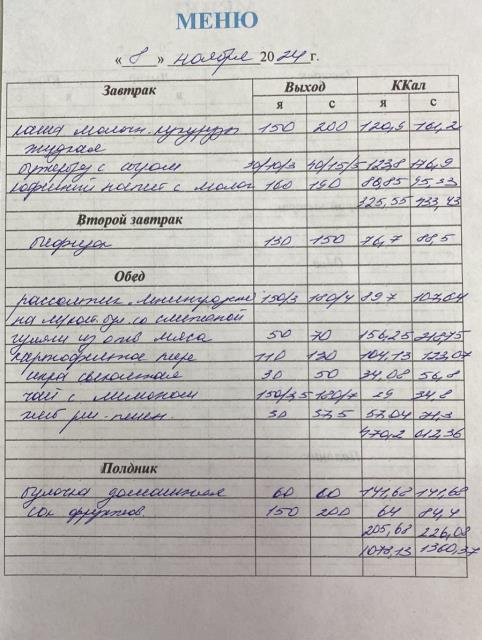 МЕНЮ
« 8 » ноября 2024 г.
Завтрак Выход ККал
я с я с
каша молочн. кукурузн 150 200 120,9 161,2
жидкая
бутерброд с сыром 30/10/3 40/15/5 123,8 176,9
кофейный напит с молок 160 190 80,85 95,33
325,55 433,43
Второй завтрак
бифидок 130 150 76,7 88,5
Обед
рассольник Ленинградский 150/3 180/4 89,7 107,64
на мясот. бул. со сметаной
гуляш из отв мяса 50 70 156,25 218,75
картофельное пюре 110 130 104,13 123,07
икра свекольная 30 50 34,08 56,8
чай с лимоном 150/3,5 180/7 29 34,8
хлеб рж-пшен. 30 37,5 57,04 71,3
470,2 612,36
Полдник
булочка домашняя 60 60 141,68 141,68
сок фруктов. 150 200 64 84,4
205,68 226,08
1078,13 1360,37